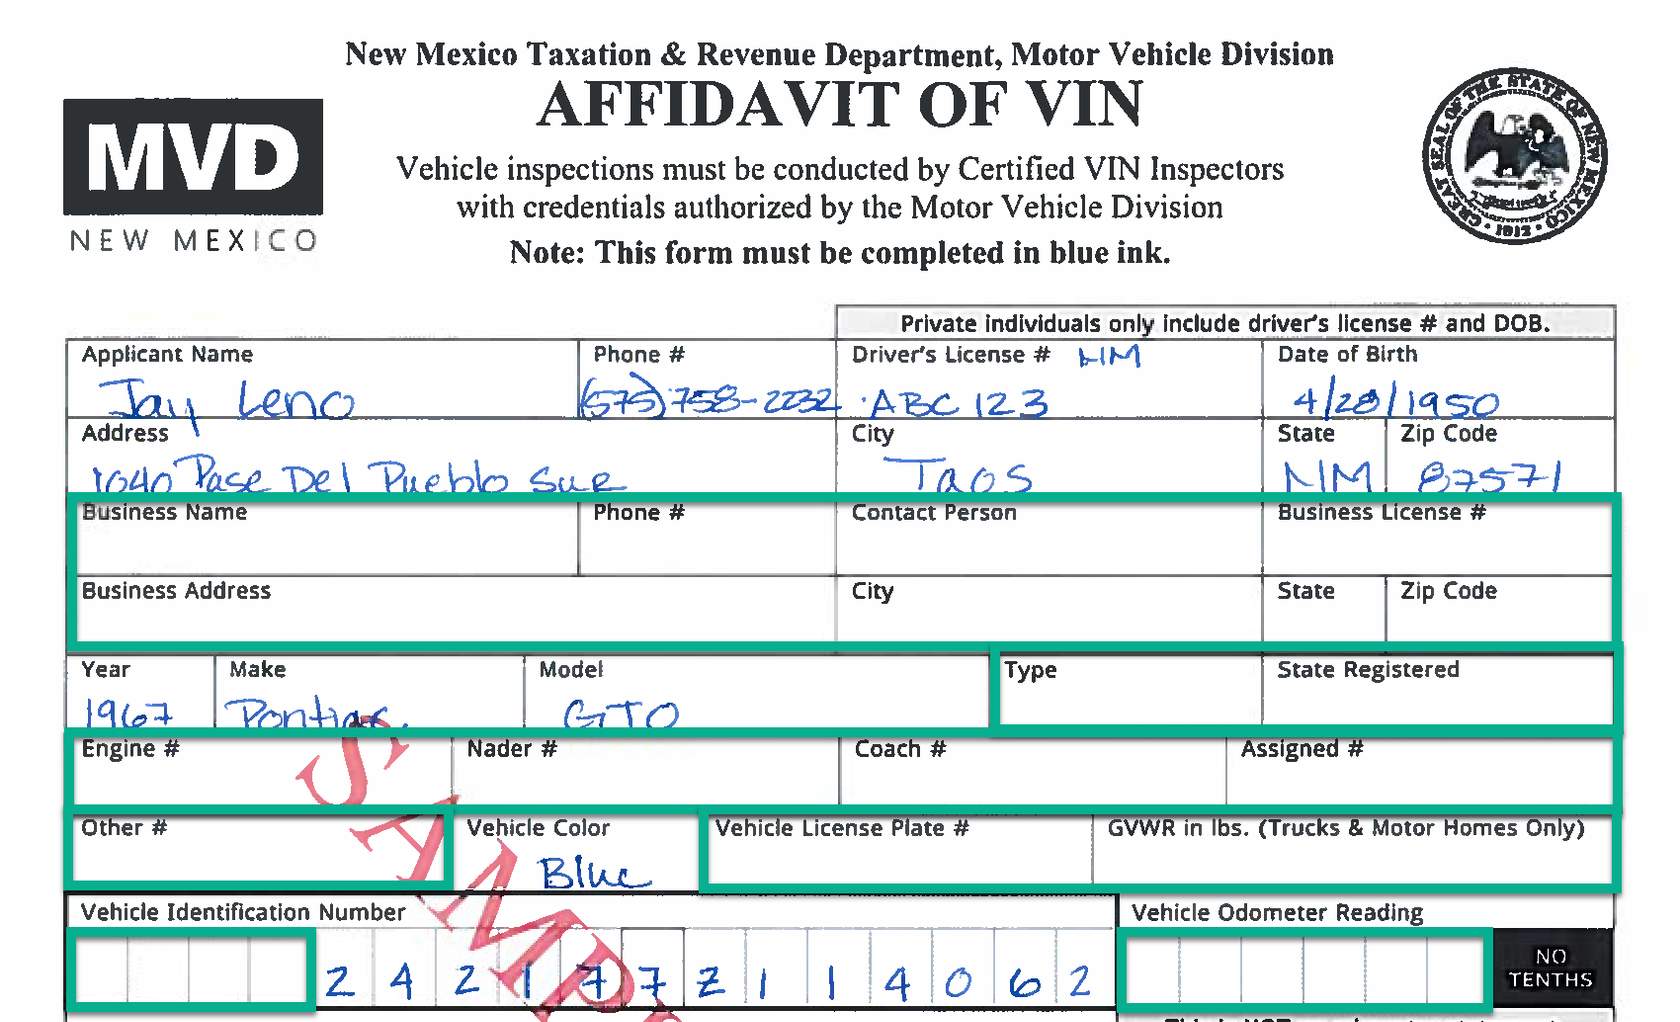 New Mexico Taxation & Revenue Department, Motor Vehicle Division
AFFIDAVIT OF VIN
MVD
NEW MEXICO
Vehicle inspections must be conducted by Certified VIN Inspectors
with credentials authorized by the Motor Vehicle Division
Note: This form must be completed in blue ink.
GREAT SEAL OF THE STATE OF NEW MEXICO
1912
Private individuals only include driver's license # and DOB.
Applicant Name Phone # Driver's License # NM Date of Birth
Jay Leno (575) 758-2232 ABC 123 4/28/1950
Address City State Zip Code
1040 Pase Del Pueblo Sur Taos NM 87571
Business Name Phone # Contact Person Business License #
Business Address City State Zip Code
Year Make Model Type State Registered
1967 Pontiac GTO
Engine # Nader # Coach # Assigned #
Other # Vehicle Color Vehicle License Plate # GVWR in lbs. (Trucks & Motor Homes Only)
Blue
Vehicle Identification Number Vehicle Odometer Reading
2 4 2 1 7 7 Z 1 1 4 0 6 2 NO TENTHS
SAMP